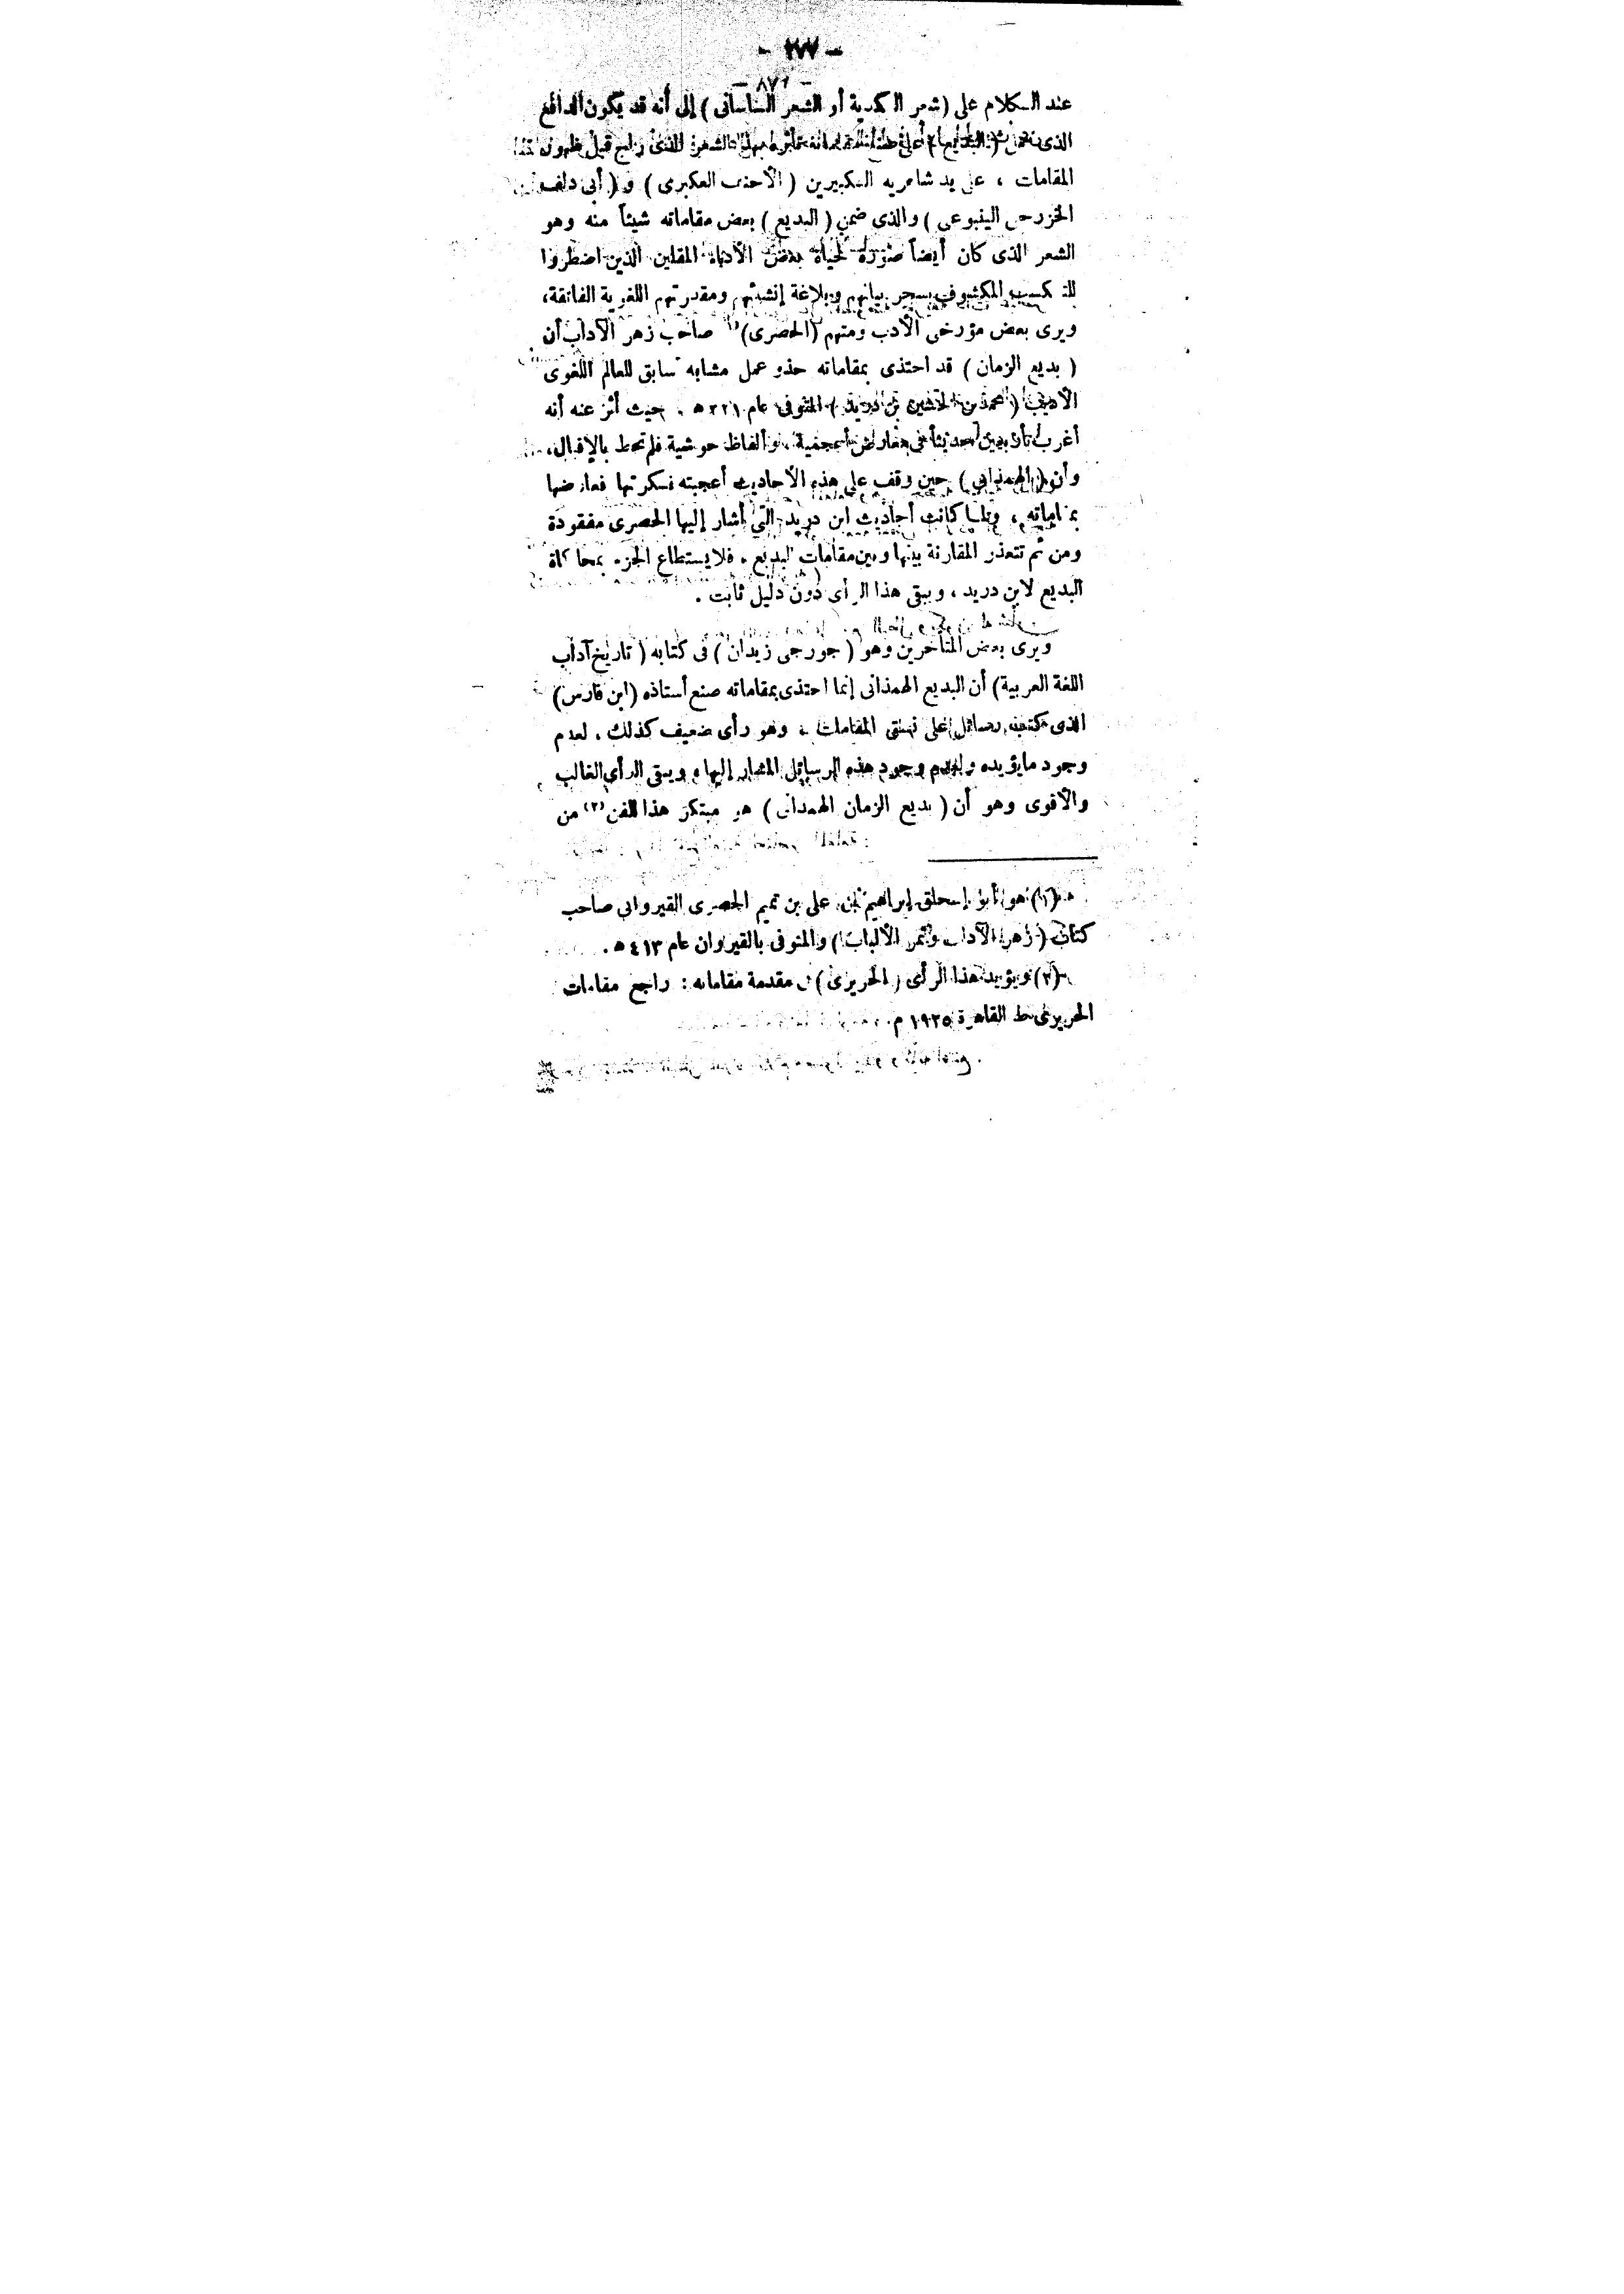 - ٢٧٧ -
عند الكلام على (شعر الكدية أو الشعر الساسانى) إلى أنه قد يكون الدافع
الذى (البديع) على بهذا الشعر الذى راج قبل ظهور
المقامات ، على يد شاعريه الكبيرين (الأحنف العكبرى) و (أبى دلف
الخزرجى الينبوعى) والذى ضمن (البديع) بعض مقاماته شيئاً منه وهو
الشعر الذى كان أيضاً صورة لحياة بعض الأدباء المقلين الذين اضطروا
للتكسب المكشوف بسحر بيانهم وبلاغة إنشائهم ومقدرتهم اللغوية الفائقة،
ويرى بعض مؤرخى الأدب ومنهم (الحصرى)(١) صاحب زهر الآداب أن
(بديع الزمان) قد احتذى بمقاماته حذو عمل مشابه سابق للعالم اللغوى
الأديب (محمد بن الحسين بن دريد) المتوفى عام ٣٢١ ه . حيث أثر عنه أنه
أغرب بأربعين حديثاً فى معارض أعجمية ، وألفاظ حوشية فلم تحط بالإقبال،
وأن (الهمذانى) حين وقف على هذه الأحاديث أعجبته فكرتها فعارضها
بمقاماته ، ولما كانت أحاديث ابن دريد التى أشار إليها الحصرى مفقودة
ومن ثم تتعذر المقارنة بينها وبين مقامات البديع ، فلا يستطاع الجزم بمحاكاة
البديع لابن دريد ، ويبقى هذا الرأى دون دليل ثابت .
ويرى بعض المتأخرين وهو (جورجى زيدان) فى كتابه (تاريخ آداب
اللغة العربية) أن البديع الهمذانى إنما احتذى بمقاماته صنع أستاذه (ابن فارس)
الذى كتب رسائل على نسق المقامات ، وهو رأى ضعيف كذلك ، لعدم
وجود ما يؤيده ولعدم وجود هذه الرسائل المشار إليها ، ويبقى الرأى الغالب
والأقوى وهو أن (بديع الزمان الهمذانى) هو مبتكر هذا الفن(٢) من
(١) هو أبو إسحاق إبراهيم بن على بن تميم الحصرى القيروانى صاحب
كتاب (زهر الآداب وثمر الألباب) والمتوفى بالقيروان عام ٤١٣ ه .
(٢) ويؤيد هذا الرأى (الحريرى) فى مقدمة مقاماته : راجع مقامات
الحريرى ط القاهرة ١٩٢٥ م .